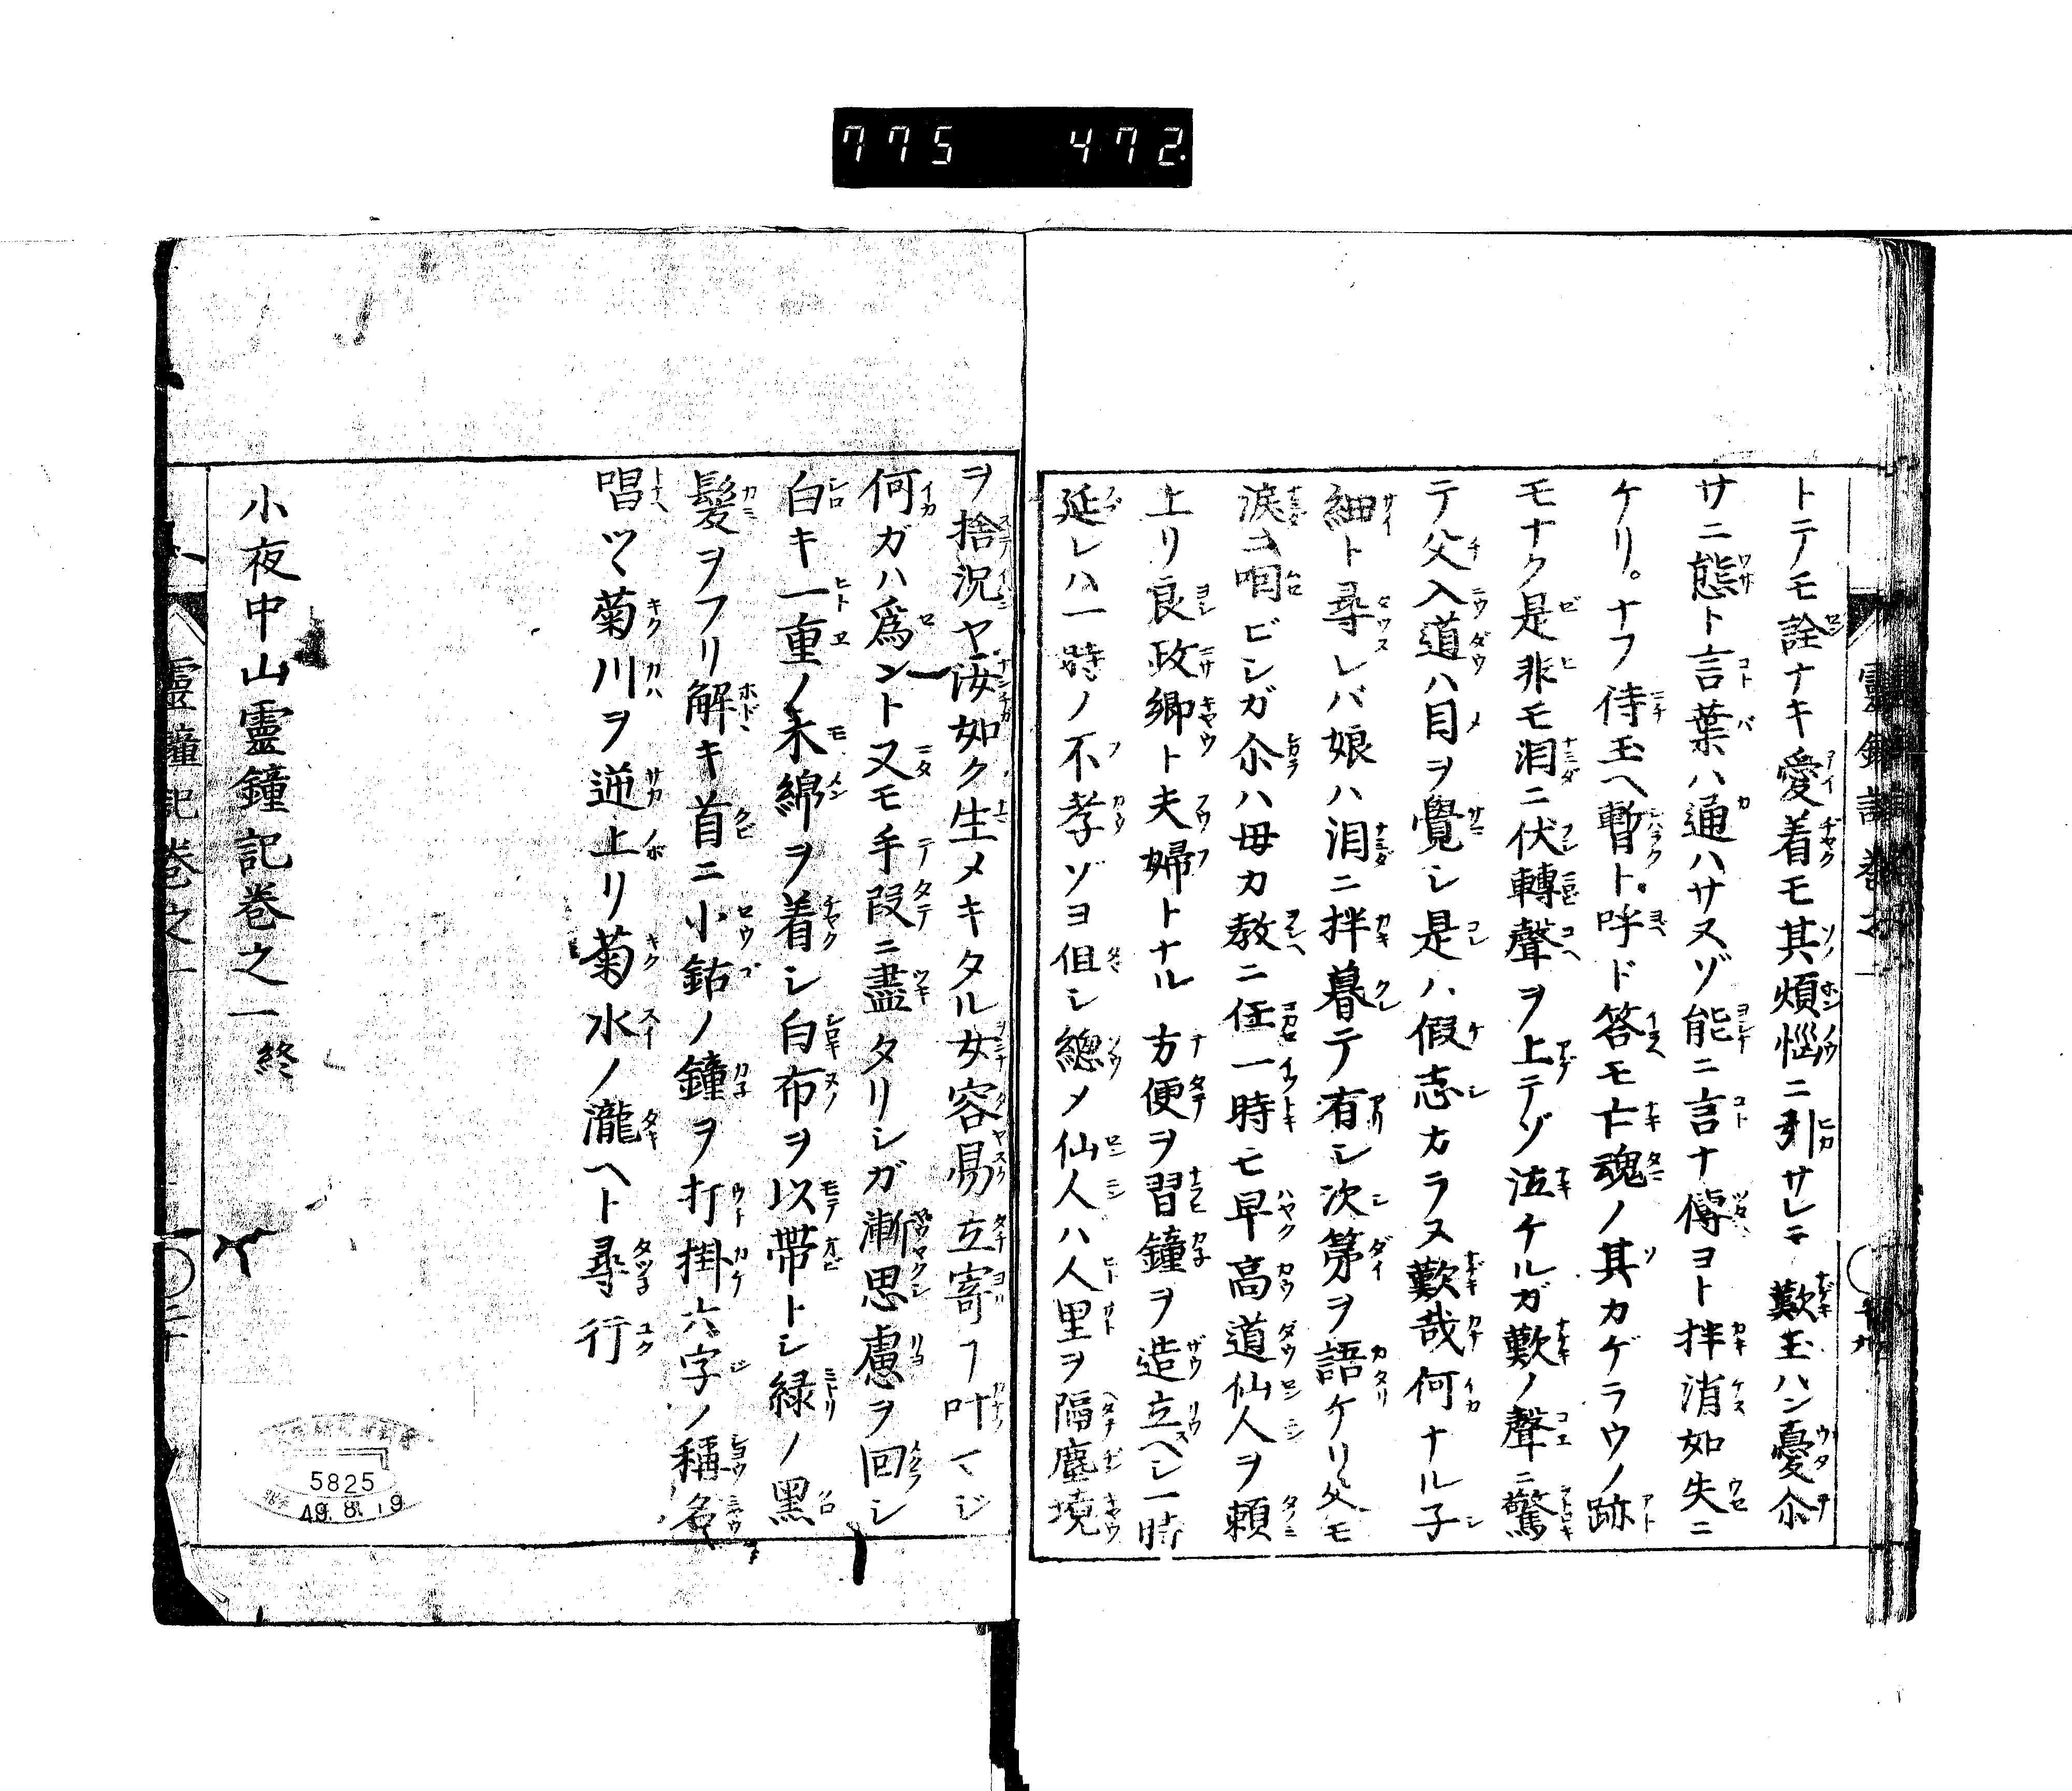 775 472.
トテモ詮ナキ愛着モ其煩惱ニ引サレテ歎玉ハン憂尒
サニ態ト言葉ハ通ハサヌゾ能ニ言ナ傳ヨト拌消如失ニ
ケリ。ナフ侍玉ヘ暫ト。呼ド答モ亡魂ノ其カゲラウノ跡
モナク是非モ泪ニ伏轉聲ヲ上テゾ泣ケルガ歎ノ聲ニ驚
テ父入道ハ目ヲ覺シ是ハ假志カラヌ歎哉何ナル子
細ト尋レバ娘ハ泪ニ拌暮テ有シ次第ヲ語ケリ父モ
淚ニ咽ビシガ尒ハ毋カ教ニ任一時モ早高道仙人ヲ頼
上リ良政卿ト夫婦トナル方便ヲ習鐘ヲ造立ヘシ一時
延レハ一時ノ不孝ゾヨ但シ總メ仙人ハ人里ヲ隔塵境
ヲ捨況ヤ汝如ク生メキタル女容易立寄フ叶マジ
何ガハ爲ント又モ手段ニ盡タリシガ漸思慮ヲ回シ
白キ一重ノ木綿ヲ着シ白布ヲ以帶トシ緑ノ黑
髮ヲフリ解キ首ニ小鈷ノ鐘ヲ打掛六字ノ稱名
唱ツヽ菊川ヲ逆上リ菊水ノ瀧ヘト尋行
小夜中山靈鐘記巻之一終
靈鐘記巻之一
二十
5825
49.8.19